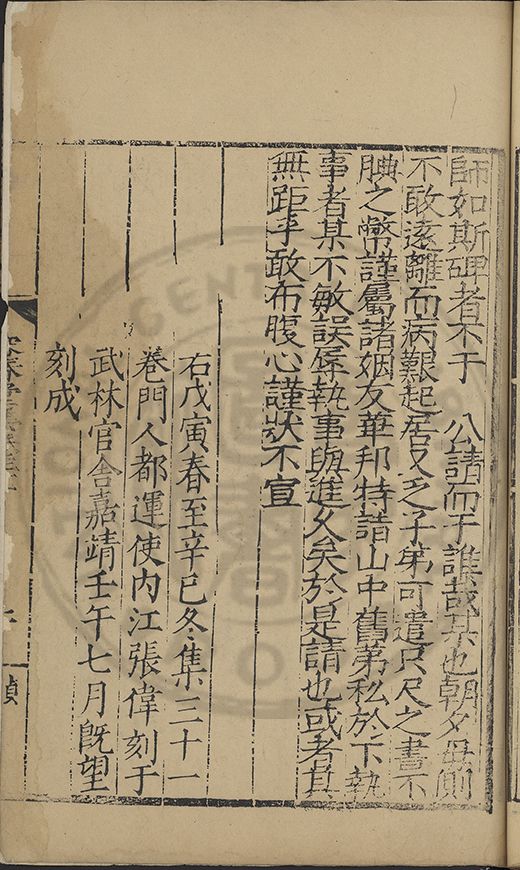 師如斯碑者不于　公請而于誰哉某也朝夕母側
不敢遠離而病艱起居又乏子弟可遣只尺之書不
腆之幣謹屬諸姻友華邦特請山中舊第私於下執
事者某不敏誤辱執事與進久矣於是請也或者其
無距乎敢布腹心謹狀不宣
右戊寅春至辛巳冬集三十一
卷門人都運使内江張偉刻于
武林官舍嘉靖壬午七月既望
刻成